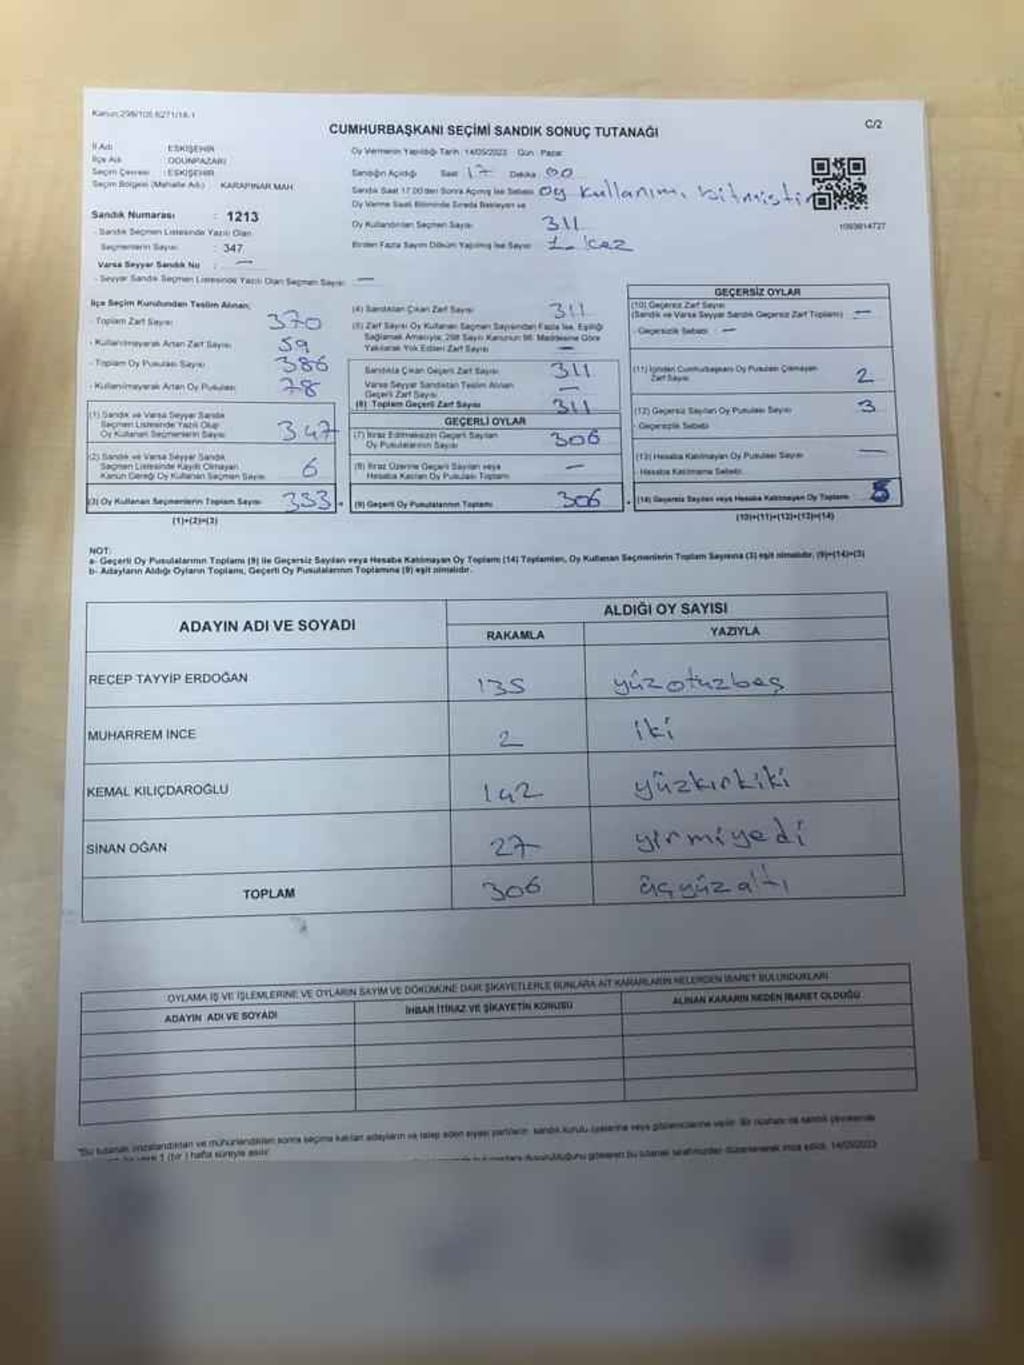 Kanun:298/105 6271/18-1
CUMHURBAŞKANI SEÇİMİ SANDIK SONUÇ TUTANAĞI
C/2
İl Adı : ESKİŞEHİR
İlçe Adı : ODUNPAZARI
Seçim Çevresi : ESKİŞEHİR
Seçim Bölgesi (Mahalle Adı) : KARAPINAR MAH.
Sandık Numarası : 1213
- Sandık Seçmen Listesinde Yazılı Olan
Seçmenlerin Sayısı : 347
Varsa Seyyar Sandık No : —
- Seyyar Sandık Seçmen Listesinde Yazılı Olan Seçmen Sayısı : —
Oy Vermenin Yapıldığı Tarih : 14/05/2023 Gün : Pazar
Sandığın Açıldığı Saat 17 Dakika : 00
Sandık Saat 17.00'den Sonra Açılmış İse Sebebi : Oy kullanımı bitmiştir
Oy Verme Saati Bitiminde Sırada Bekleyen ve
Oy Kullandırılan Seçmen Sayısı : 311
Birden Fazla Sayım Döküm Yapılmış İse Sayısı : 1. kez
1093814727
İlçe Seçim Kurulundan Teslim Alınan;
- Toplam Zarf Sayısı : 370
- Kullanılmayarak Artan Zarf Sayısı : 59
- Toplam Oy Pusulası Sayısı : 386
- Kullanılmayarak Artan Oy Pusulası : 78
(1) Sandık ve Varsa Seyyar Sandık
Seçmen Listesinde Yazılı Olup
Oy Kullanan Seçmenlerin Sayısı : 347
(2) Sandık ve Varsa Seyyar Sandık
Seçmen Listesinde Kayıtlı Olmayan
Kanun Gereği Oy Kullanan Seçmen Sayısı : 6
(3) Oy Kullanan Seçmenlerin Toplam Sayısı : 353 =
(1)+(2)=(3)
(4) Sandıktan Çıkan Zarf Sayısı : 311
(5) Zarf Sayısı Oy Kullanan Seçmen Sayısından Fazla İse, Eşitliği
Sağlamak Amacıyla, 298 Sayılı Kanunun 98. Maddesine Göre
Yakılarak Yok Edilen Zarf Sayısı : —
Sandıkta Çıkan Geçerli Zarf Sayısı : 311
Varsa Seyyar Sandıktan Teslim Alınan
Geçerli Zarf Sayısı : —
(6) Toplam Geçerli Zarf Sayısı : 311
GEÇERLİ OYLAR
(7) İtiraz Edilmeksizin Geçerli Sayılan
Oy Pusulalarının Sayısı : 306
(8) İtiraz Üzerine Geçerli Sayılan veya
Hesaba Katılan Oy Pusulası Toplamı : —
(9) Geçerli Oy Pusulalarının Toplamı : 306 +
GEÇERSİZ OYLAR
(10) Geçersiz Zarf Sayısı
(Sandık ve Varsa Seyyar Sandık Geçersiz Zarf Toplamı) : —
- Geçersizlik Sebebi : —
(11) İçinden Cumhurbaşkanı Oy Pusulası Çıkmayan
Zarf Sayısı : 2
(12) Geçersiz Sayılan Oy Pusulası Sayısı : 3
- Geçersizlik Sebebi :
(13) Hesaba Katılmayan Oy Pusulası Sayısı : —
- Hesaba Katılmama Sebebi:
(14) Geçersiz Sayılan veya Hesaba Katılmayan Oy Toplamı : 5
(10)+(11)+(12)+(13)=(14)
NOT:
a- Geçerli Oy Pusulalarının Toplamı (9) ile Geçersiz Sayılan veya Hesaba Katılmayan Oy Toplamı (14) Toplamları, Oy Kullanan Seçmenlerin Toplam Sayısına (3) eşit olmalıdır. (9)+(14)=(3)
b- Adayların Aldığı Oyların Toplamı, Geçerli Oy Pusulalarının Toplamına (9) eşit olmalıdır.
ADAYIN ADI VE SOYADI
ALDIĞI OY SAYISI
RAKAMLA YAZIYLA
RECEP TAYYİP ERDOĞAN 135 yüzotuzbeş
MUHARREM İNCE 2 iki
KEMAL KILIÇDAROĞLU 142 yüzkırkiki
SİNAN OĞAN 27 yirmiyedi
TOPLAM 306 üçyüzaltı
OYLAMA İŞ VE İŞLEMLERİNE VE OYLARIN SAYIM VE DÖKÜMÜNE DAİR ŞİKAYETLERLE BUNLARA AİT KARARLARIN NELERDEN İBARET BULUNDUKLARI
ADAYIN ADI VE SOYADI İHBAR İTİRAZ VE ŞİKAYETİN KONUSU ALINAN KARARIN NEDEN İBARET OLDUĞU
"Bu tutanak imzalandıktan ve mühürlendikten sonra seçime katılan adayların ve talep eden siyasi partilerin sandık kurulu üyelerine veya gözlemcilerine verilir. Bir nüshası da sandık çevresinde
1 (bir) hafta süreyle asılır.
bu tutanak tarafımızdan düzenlenerek imza edildi. 14/05/2023